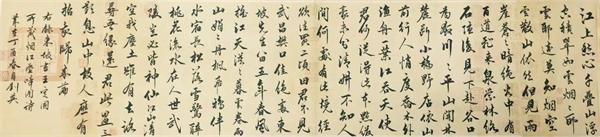 江上愁心千叠山浮
空積翠如雲煙山耶
雲耶遠莫知煙
空雲散山依然但見兩
崖蒼蒼暗絕谷中有
百道飛來泉縈林絡石
隱復見下赴谷口為
奔川川平山開林
麓斷小橋野店依山
前行人稍度喬木外
漁舟一葉江吞天使
君何從得此本點綴
毫末分清妍不知人
間何處有此境徑
欲往買二頃田君不見
武昌樊口幽絕處東
坡先生留五年春風
搖江天漠漠暮雲卷雨
山娟娟丹楓翻鴉伴
水宿長松落雪驚晝眠
桃花流水在人世武
陵豈必皆神仙江山清
空我塵土雖有去路
尋無緣還君此畫三
歎息山中故人應有
招我歸來篇
右錄東坡王定國
所藏煙江疊嶂圖詩
丁酉春